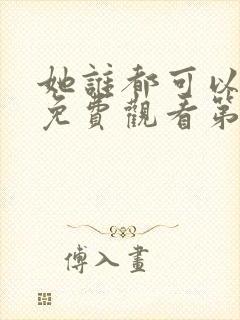 她誰都可以
免費觀看第
傅入畫